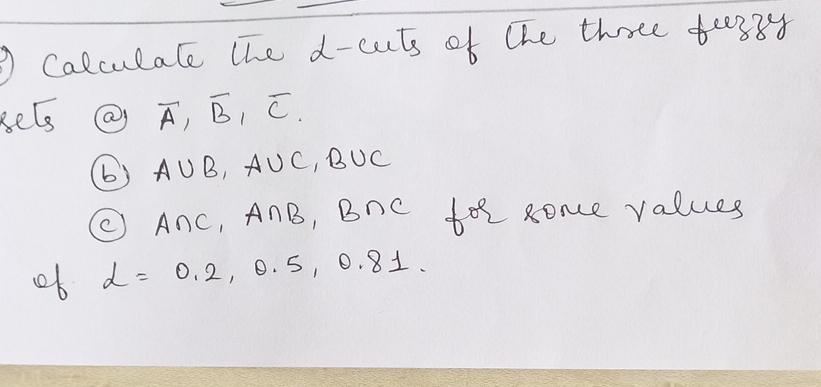 ) Calculate the α-cuts of the three fuzzy
sets ⓐ A̅, B̅, C̅.
ⓑ A∪B, A∪C, B∪C
ⓒ A∩C, A∩B, B∩C for some values
of α = 0.2, 0.5, 0.81.